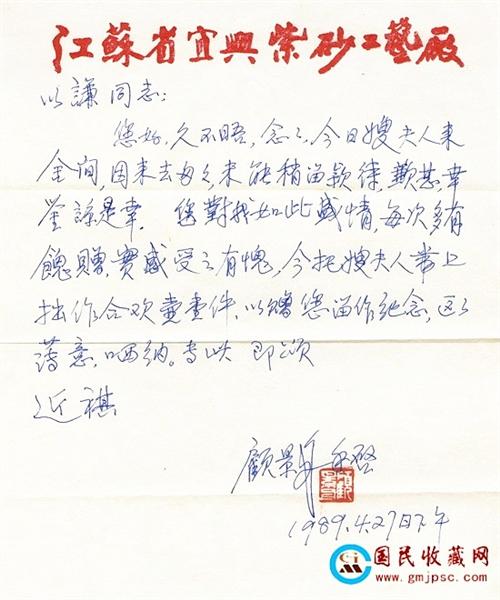 江蘇省宜興紫砂工藝廠
以謙同志:
您好,久不晤,念之,今日嫂夫人来
舍间,因来去匆匆,未能稍留款待,歉甚幸
鉴諒是幸。您對我如此盛情,每次多有
餽贈,實感受之有愧,今托嫂夫人带上
拙作合欢壶壹件,以贈您留作纪念,区区
薄意,哂纳。专此 即颂
近祺
顧景舟
1989.4.27日下午
国民收藏网
www.gmjpsc.com